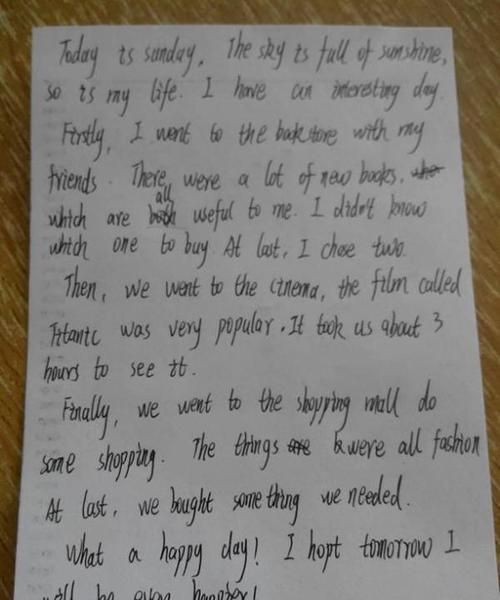 Today is sunday. The sky is full of sunshine,
so is my life. I have an interesting day.
Firstly, I went to the bookstore with my
friends. There were a lot of new books,
all
which are both useful to me. I didn't know
which one to buy. At last, I chose two.
Then, we went to the cinema, the film called
Titanic was very popular. It took us about 3
hours to see it.
Finally, we went to the shopping mall do
some shopping. The things are were all fashion
At last, we bought something we needed.
What a happy day! I hopt tomorrow I
will be even happier!